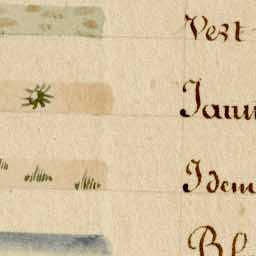 Vert
Jaun
Idem
Bl